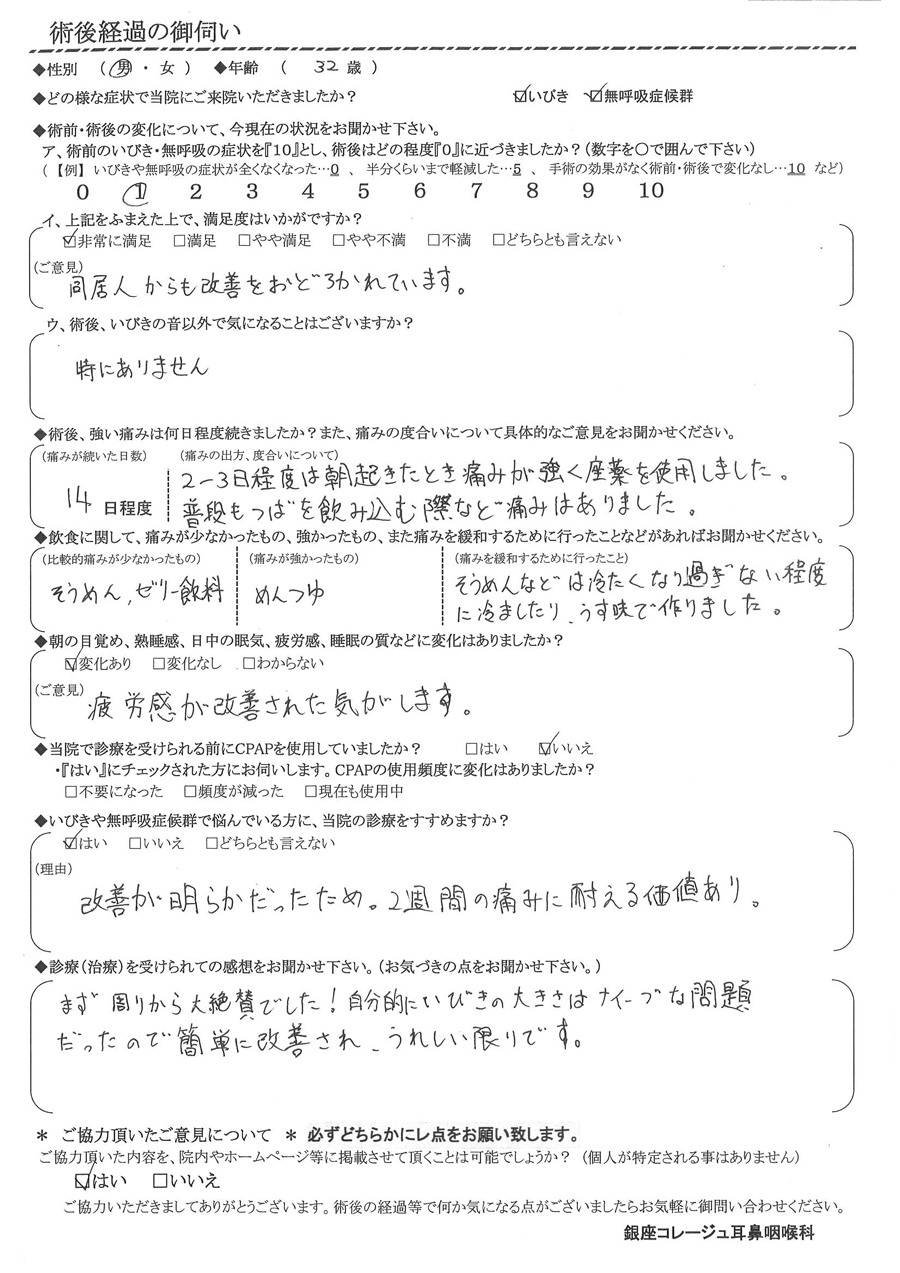 術後経過の御伺い
◆性別 （ 男 ・ 女 ） ◆年齢 （ 32 歳 ）
◆どの様な症状で当院にご来院いただきましたか？ ☑いびき ☑無呼吸症候群
◆術前・術後の変化について、今現在の状況をお聞かせ下さい。
ア、術前のいびき・無呼吸の症状を『10』とし、術後はどの程度『0』に近づきましたか？（数字を○で囲んで下さい）
（ 【例】 いびきや無呼吸の症状が全くなくなった…0 、 半分くらいまで軽減した…5 、 手術の効果がなく術前・術後で変化なし…10 など）
0 1 2 3 4 5 6 7 8 9 10
イ、上記をふまえた上で、満足度はいかがですか？
☑非常に満足 □満足 □やや満足 □やや不満 □不満 □どちらとも言えない
（ご意見）
同居人からも改善をおどろかれています。
ウ、術後、いびきの音以外で気になることはございますか？
特にありません
◆術後、強い痛みは何日程度続きましたか？また、痛みの度合いについて具体的なご意見をお聞かせください。
（痛みが続いた日数） （痛みの出方、度合いについて）
2－3日程度は朝起きたとき痛みが強く座薬を使用しました。
14 日程度 普段もつばを飲み込む際など痛みはありました。
◆飲食に関して、痛みが少なかったもの、強かったもの、また痛みを緩和するために行ったことなどがあればお聞かせください。
（比較的痛みが少なかったもの） （痛みが強かったもの） （痛みを緩和するために行ったこと）
そうめん、ゼリー飲料 めんつゆ そうめんなどは冷たくなり過ぎない程度
に冷ましたり、うす味で作りました。
◆朝の目覚め、熟睡感、日中の眠気、疲労感、睡眠の質などに変化はありましたか？
☑変化あり □変化なし □わからない
（ご意見）
疲労感が改善された気がします。
◆当院で診療を受けられる前にCPAPを使用していましたか？ □はい ☑いいえ
・『はい』にチェックされた方にお伺いします。CPAPの使用頻度に変化はありましたか？
□不要になった □頻度が減った □現在も使用中
◆いびきや無呼吸症候群で悩んでいる方に、当院の診療をすすめますか？
☑はい □いいえ □どちらとも言えない
（理由）
改善が明らかだったため。2週間の痛みに耐える価値あり。
◆診療（治療）を受けられての感想をお聞かせ下さい。（お気づきの点をお聞かせ下さい。）
まず周りから大絶賛でした！自分的にいびきの大きさはナイーブな問題
だったので簡単に改善され、うれしい限りです。
＊ ご協力頂いたご意見について ＊ 必ずどちらかにレ点をお願い致します。
ご協力頂いた内容を、院内やホームページ等に掲載させて頂くことは可能でしょうか？ （個人が特定される事はありません）
☑はい □いいえ
ご協力いただきましてありがとうございます。術後の経過等で何か気になる点がございましたらお気軽に御問い合わせください。
銀座コレージュ耳鼻咽喉科